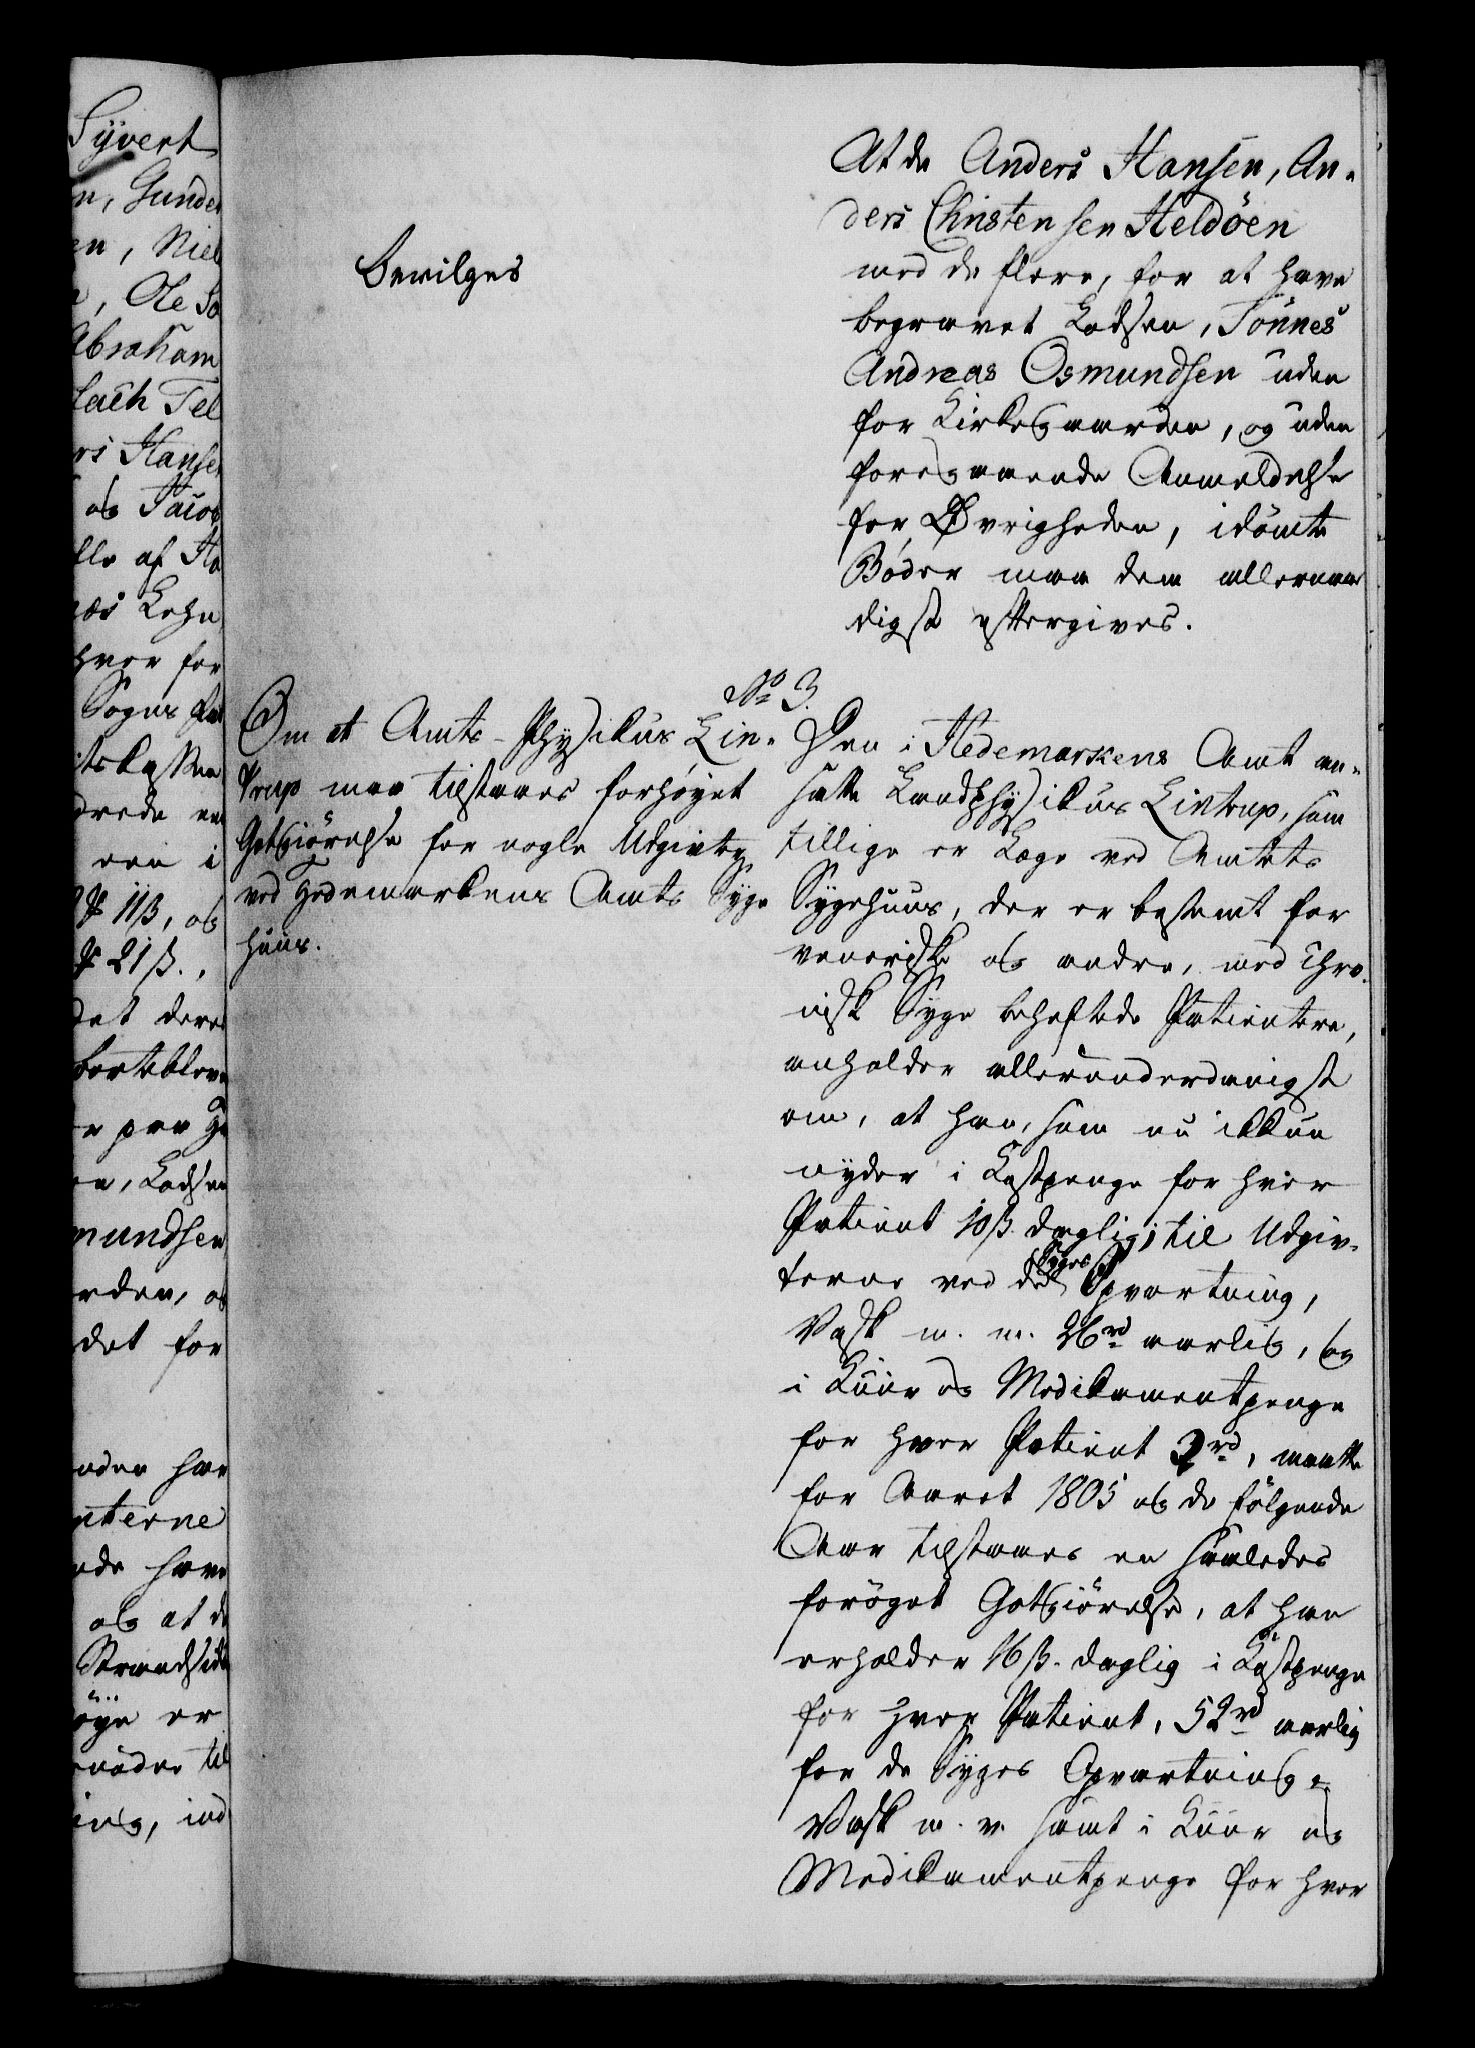 Syvert
n, Gunder
en, Niel
, Ole So
Abraham
lach Tel
rs Hansen
og Jacob
lle af Ha
næs Lehn
hver for
Sogns Fat
drede en
een i
11 β, og
21 β.,
det deres
bortebleve
er paa He
en, Lodsen
mundsen
rden, og
det for
nden har
nterne
nde have
og at de
Strandside
øye er
ing, ind
At de Anders Hansen, An-
ders Christensen Heldöen
med de flere, for at have
begravet Lodsen, Tönnes
Andreas Osmundsen uden
for Kirkegaarden, og uden
foregaaende Anmeldelse
for Øvrigheden, idömte
Böder maa dem allernaa
digst eftergives.
Bevilges
No 3.
Om at Amts-Physikus Lin-
trup maa tilstaaes forhøyet
Godtgiörelse for nogle Udgivter
ved Hedemarkens Amts Syge
huus.
Den i Hedemarkens Amt an-
satte Landphysikus Lintrup, som
tillige er Læge ved Amtets
Sygehuus, der er bestemt for
veneriske og andre, med chro-
nisk Syge behæftede Patientere,
anholder allerunderdanigst
om, at han, som nu ikkun
nyder i Kostpenge for hver
Patient 10 β. daglig, til Udgiv-
terne ved de Syges Opvartning,
Vask m. m. 26 rd aarlig, og
i Kuur og Medikamentpenge
for hver Patient 2 rd, maatte
for Aaret 1805 og de fölgende
Aar tilstaaes en saaledes
foröget Godtgiörelse, at han
erholder 16 β. daglig i Kostpenge
for hver Patient, 52 rd aarlig
for de Syges Opvartning,
Vask m. v. samt i Kuur og
Medikamentpenge for hver